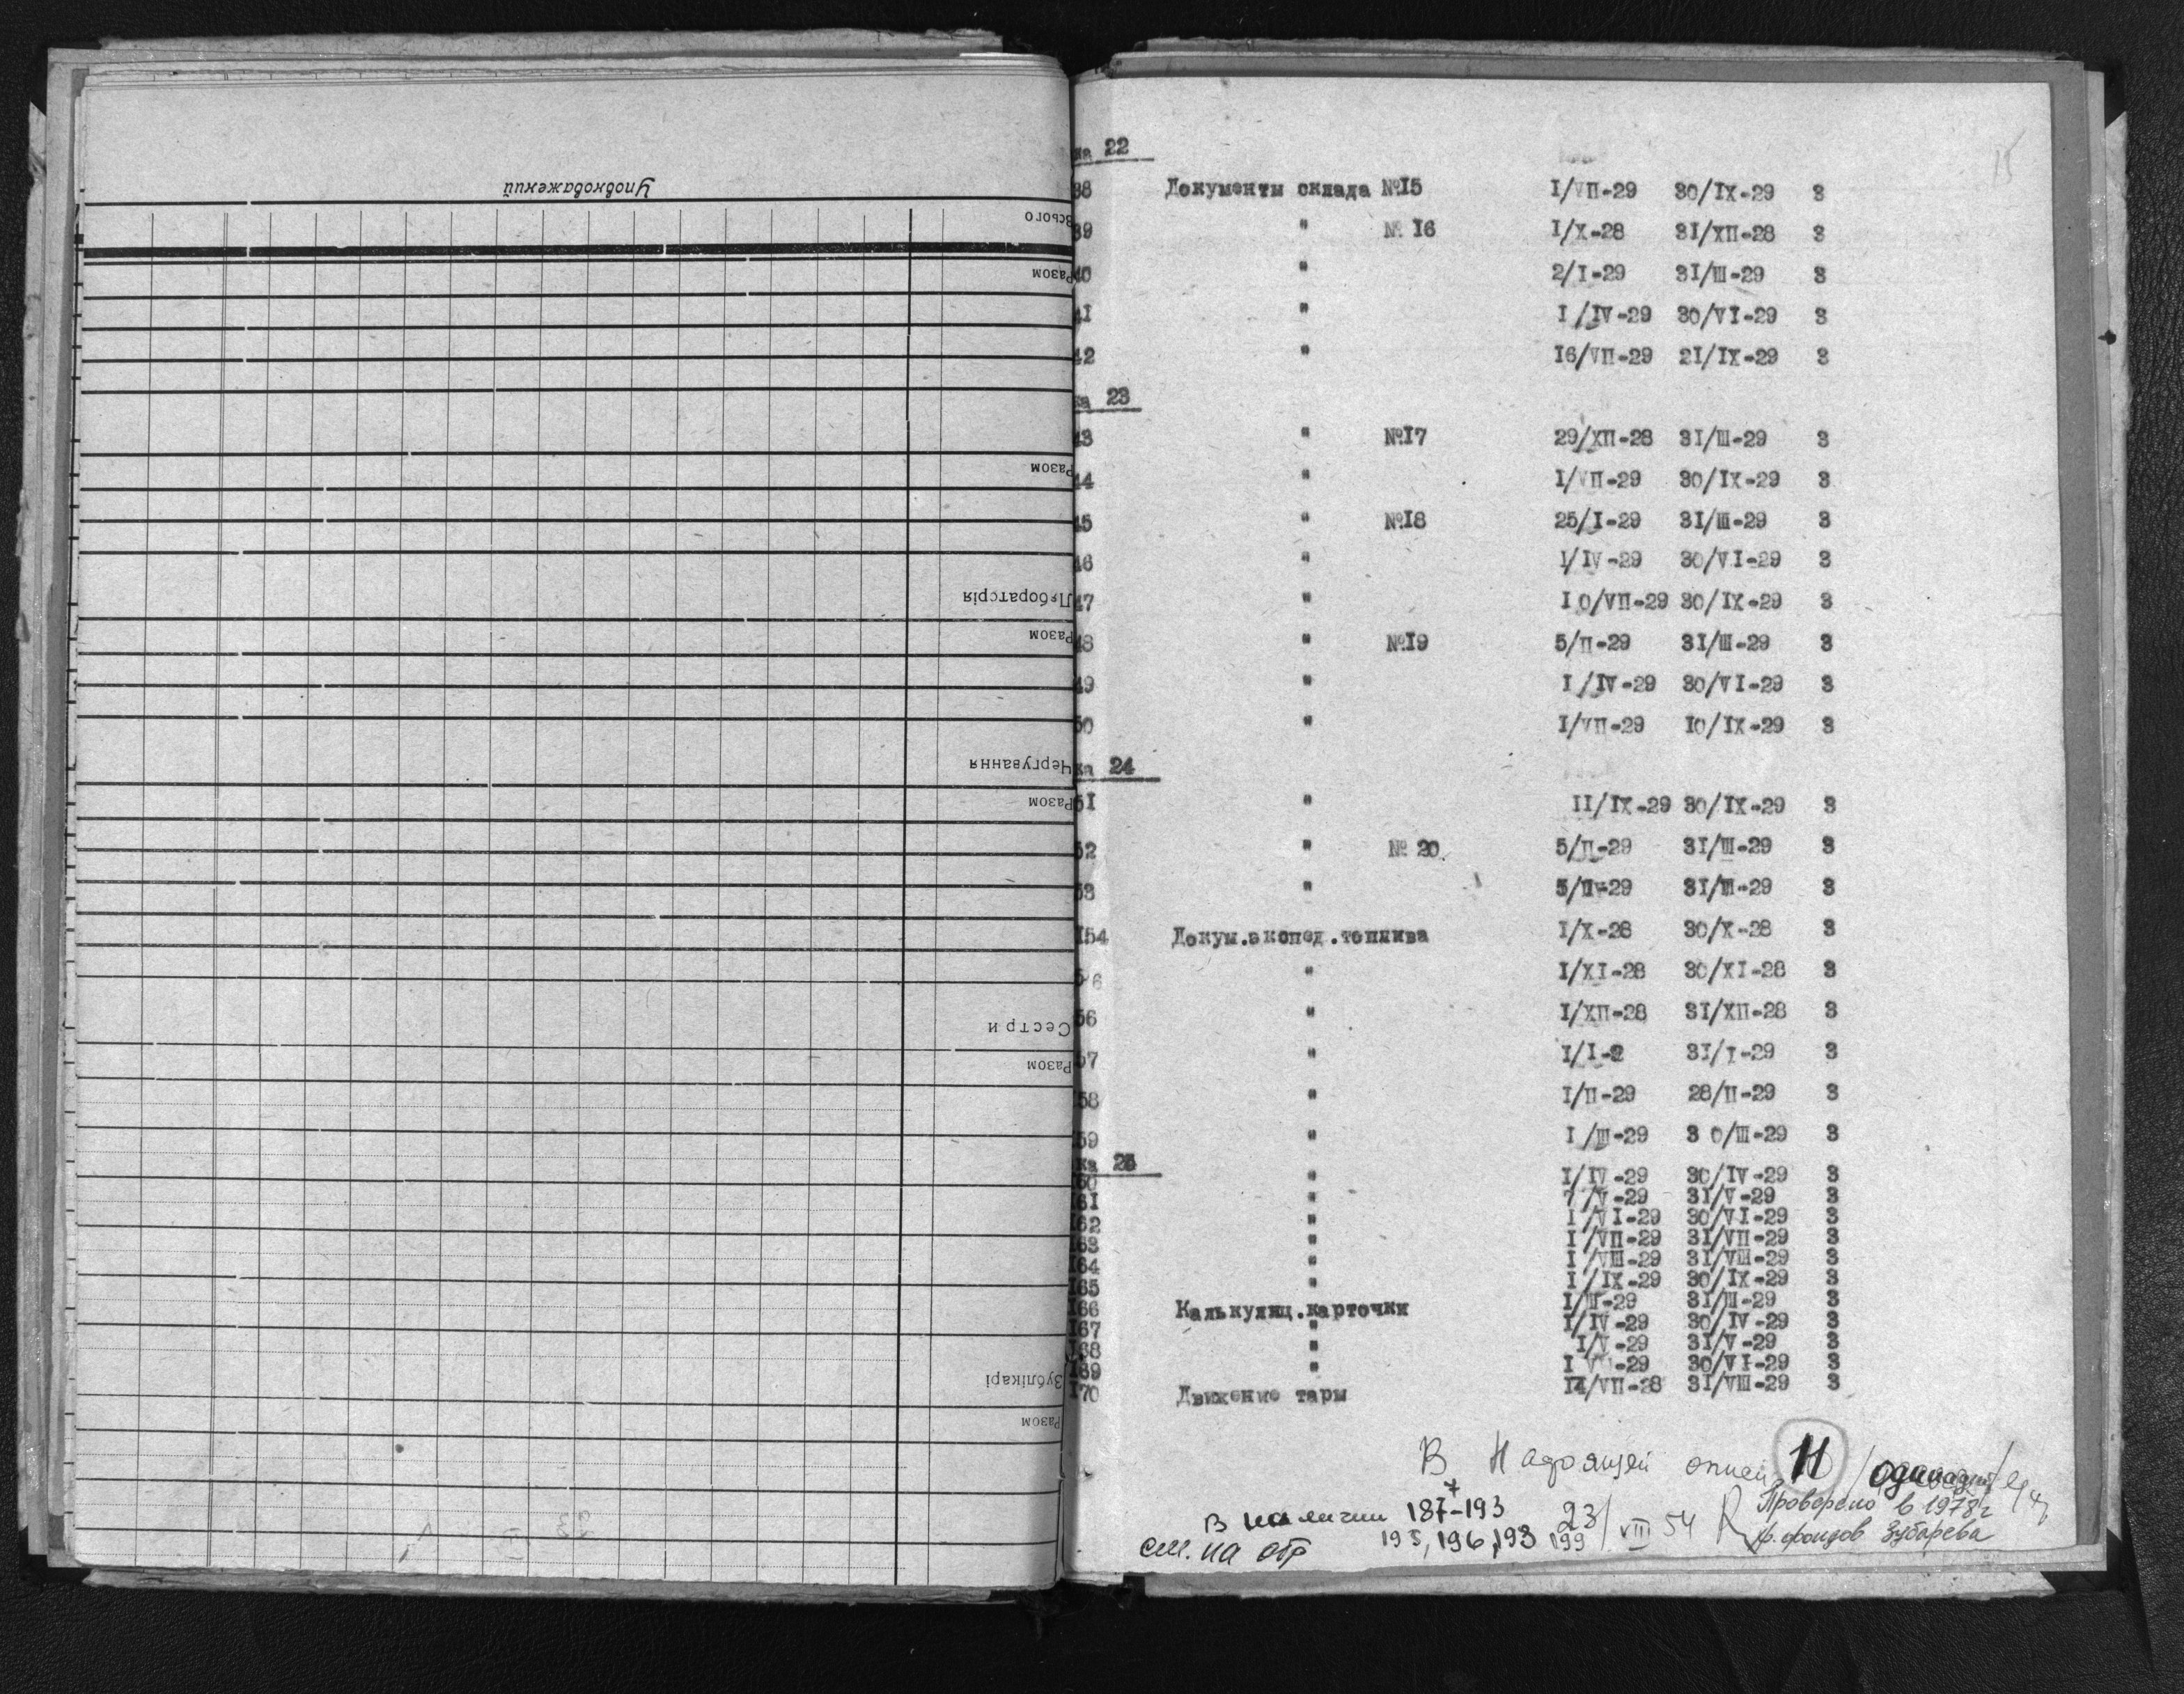 Уповноважений
Всього
Разом
Разом
Лябораторія
Разом
Чергування
Разом
Сестри
Разом
Зублікарі
Разом
15
ка 22
38 Документы склада №I5 I/VII-29 30/IX-29 3
39 " № I6 I/X-28 3I/XII-28 3
40 " 2/I-29 3I/III-29 3
4I " I/IV-29 30/VI-29 3
42 " I6/VII-29 2I/IX-29 3
ка 23
43 " №I7 29/XII-28 3I/III-29 3
44 " I/VII-29 30/IX-29 3
45 " №I8 25/I-29 3I/III-29 3
46 " I/IV-29 30/VI-29 3
47 " I0/VII-29 30/IX-29 3
48 " №I9 5/II-29 3I/III-29 3
49 " I/IV-29 30/VI-29 3
50 " I/VII-29 I0/IX-29 3
ка 24
5I " II/IX-29 30/IX-29 3
52 " № 20. 5/II-29 3I/III-29 3
53 " 5/II-29 3I/III-29 3
I54 Докум.экспед.топлива I/X-28 30/X-28 3
" I/XI-28 30/XI-28 3
56 " I/XII-28 3I/XII-28 3
57 " I/I-2 3I/I-29 3
58 " I/II-29 28/II-29 3
59 " I/III-29 3 0/III-29 3
ка 25
60 " I/IV-29 30/IV-29 3
I6I " 7/V-29 3I/V-29 3
I62 " I/VI-29 30/VI-29 3
I63 " I/VII-29 3I/VII-29 3
I64 " I/VIII-29 3I/VIII-29 3
I65 " I/IX-29 30/IX-29 3
I66 Калькуляц.карточки I/III-29 3I/III-29 3
I67 " I/IV-29 30/IV-29 3
I68 " I/V-29 3I/V-29 3
I69 " I VI-29 30/VI-29 3
I70 Движение тары I4/VII-28 3I/VIII-29 3
В настоящей описи 11 /одинадц/
Проверено в 1978 г
в наличии 187-193 23/VIII 54
хр. фондов Зубарева
195, 196, 193 199
см. на обр